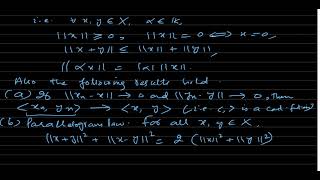 i.e. ∀ x, y ∈ X, α ∈ 𝕜,
||x|| ≥ 0, ||x|| = 0 ⟺ x = 0,
||x + y|| ≤ ||x|| + ||y||,
||αx|| = |α| ||x||.
Also the following results hold.
(a) If ||xn - x|| → 0 and ||yn - y|| → 0, then
<xn, yn> → <x, y> (i.e. <, > is a cont. fn)
(b) Parallelogram law. for all x, y ∈ X,
||x + y||² + ||x - y||² = 2 (||x||² + ||y||²)